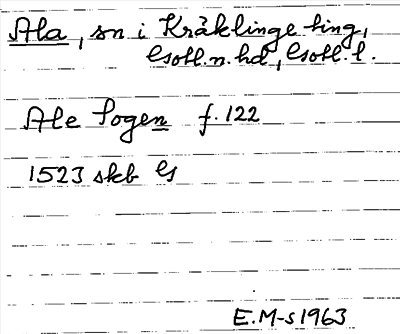 Ala, sn i Kräklinge ting,
Gotl. n. hd, Gotl. l.
Ale Sogen f. 122
1523 skb G
E. M-s 1963